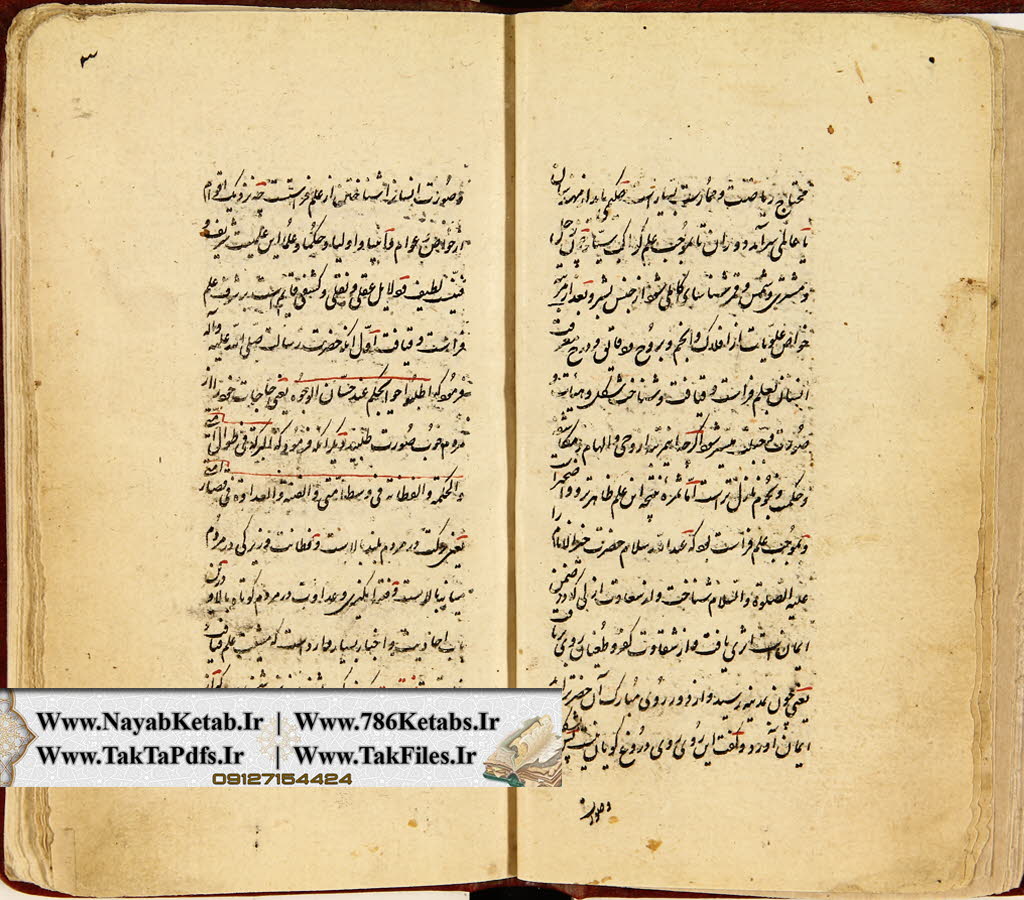 محتاج ریاضت و ممارست بسیار است حکیمی باید از مهندسان
تا عالمی سرآمد دوران تا بموجب علم کواکب سیاره چون زحل
و مشتری و شمس و قمر شناسای کامل شود از جنس بشر و بعد از مرتبه
خواص علویات از افلاک و انجم و بروج و دقایق و درج معرفت
انسان بعلم فراست و قیافت و شناخت شکل و هیئات
صورت میسر شود اگر چه روحی و الهام و مکاشفه
و حکمت و نجوم نازل تر است اما ثمره و نتیجه این علم ظاهرتر و واضحتر است
و بموجب علم فراست بود که عبد الله سلام حضرت خیر الانام را
علیه الصلوة والسلام شناخت و از سعادت ازلی که در ضمن
ایمان است اثری یافت و از شقاوت کفر و طغیان روی بتافت
یعنی چون بمدینه رسید و از دور روی مبارک آن حضرت را
ایمان آورد و گفت این روی روی دروغ گویان نیست
و صورت
۳
و صورت انسان را شناختن از علم فراست چه نزدیک اقوام
از خواص و عوام و انبیا و اولیا و حکما و علما این علمیست شریف و
فنیست لطیف و دلایل عقلی و نقلی و کشفی قایم است بر شرف علم
فراست و قیافت اول آنکه حضرت رسالت صلی الله علیه وآله
فرموده که اطلبوا حوایجکم عند حسان الوجوه یعنی حاجات خود را از
مردم خوب صورت طلبید و دیگر آنکه فرمود که البرکة فی طوال امتی
والحکمة والفطانة فی وسط امتی والفتنة والعداوة فی قصار امتی
یعنی برکت در مردم بلند بالاست و فطانت و زیرکی در مردم
میانه بالاست و فتنه انگیزی و عداوت در مردم کوتاه بالا و درین
باب احادیث و اخبار بسیار وارد است که مثبت علم قیافت
Www.NayabKetab.Ir | Www.786Ketabs.Ir
Www.TakTaPdfs.Ir | Www.TakFiles.Ir
09127154424